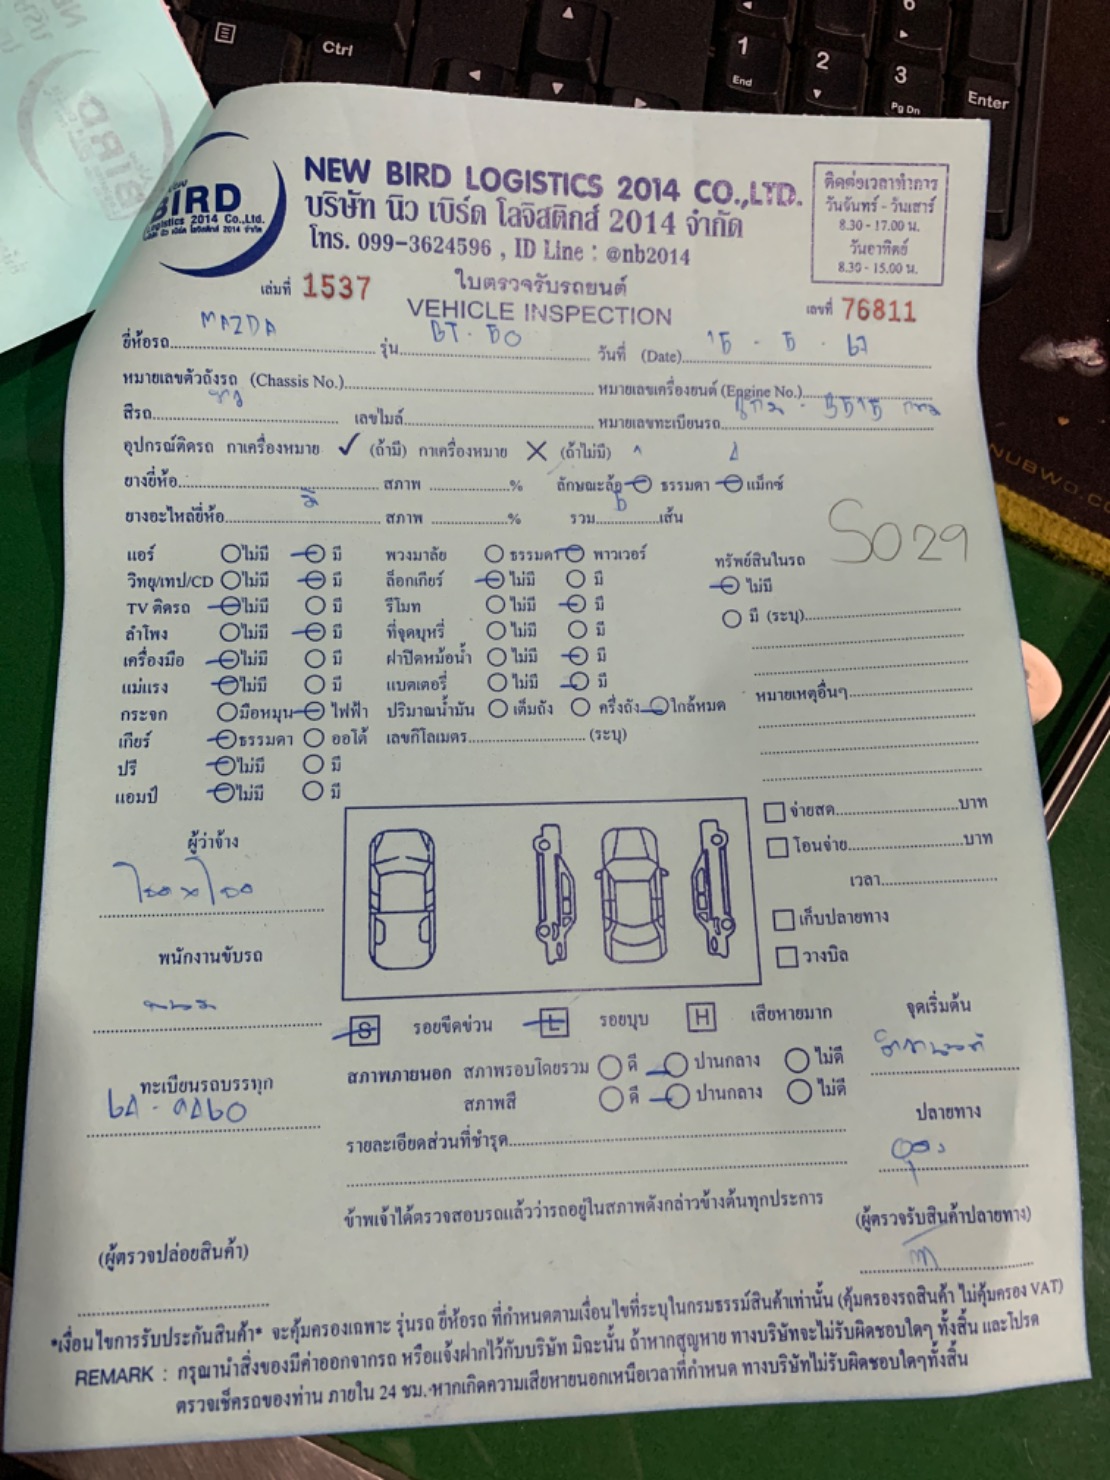 BIRD
Logistics 2014 Co.,Ltd.
บริษัท นิว เบิร์ด โลจิสติกส์ 2014 จำกัด
NEW BIRD LOGISTICS 2014 CO.,LTD.
บริษัท นิว เบิร์ด โลจิสติกส์ 2014 จำกัด
โทร. 099-3624596 , ID Line : @nb2014
ติดต่อเวลาทำการ
วันจันทร์ - วันเสาร์
8.30 - 17.00 น.
วันอาทิตย์
8.30 - 15.00 น.
เล่มที่ 1537
ใบตรวจรับรถยนต์
VEHICLE INSPECTION
เลขที่ 76811
ยี่ห้อรถ MAZDA รุ่น BT-50 วันที่ (Date) 15 - 5 - 67
หมายเลขตัวถังรถ (Chassis No.) หมายเลขเครื่องยนต์ (Engine No.)
สีรถ เลขไมล์ หมายเลขทะเบียนรถ
อุปกรณ์ติดรถ กาเครื่องหมาย ✓ (ถ้ามี) กาเครื่องหมาย ✕ (ถ้าไม่มี)
ยางยี่ห้อ สภาพ % ลักษณะล้อ ธรรมดา แม็กซ์
ยางอะไหล่ยี่ห้อ มี สภาพ % รวม เส้น
S029
แอร์ ไม่มี มี พวงมาลัย ธรรมดา พาวเวอร์ ทรัพย์สินในรถ
วิทยุ/เทป/CD ไม่มี มี ล็อกเกียร์ ไม่มี มี ไม่มี
TV ติดรถ ไม่มี มี รีโมท ไม่มี มี มี (ระบุ)
ลำโพง ไม่มี มี ที่จุดบุหรี่ ไม่มี มี
เครื่องมือ ไม่มี มี ฝาปิดหม้อน้ำ ไม่มี มี
แม่แรง ไม่มี มี แบตเตอรี่ ไม่มี มี หมายเหตุอื่นๆ
กระจก มือหมุน ไฟฟ้า ปริมาณน้ำมัน เต็มถัง ครึ่งถัง ใกล้หมด
เกียร์ ธรรมดา ออโต้ เลขกิโลเมตร (ระบุ)
ปรี ไม่มี มี
แอมป์ ไม่มี มี
จ่ายสด บาท
ผู้ว่าจ้าง
โอนจ่าย บาท
เวลา
เก็บปลายทาง
พนักงานขับรถ
วางบิล
S รอยขีดข่วน L รอยบุบ H เสียหายมาก
จุดเริ่มต้น
สภาพภายนอก สภาพรอบโดยรวม ดี ปานกลาง ไม่ดี
ทะเบียนรถบรรทุก
สภาพสี ดี ปานกลาง ไม่ดี
ปลายทาง
รายละเอียดส่วนที่ชำรุด
ข้าพเจ้าได้ตรวจสอบรถแล้วว่ารถอยู่ในสภาพดังกล่าวข้างต้นทุกประการ
(ผู้ตรวจรับสินค้าปลายทาง)
(ผู้ตรวจปล่อยสินค้า)
*เงื่อนไขการรับประกันสินค้า* จะคุ้มครองเฉพาะ รุ่นรถ ยี่ห้อรถ ที่กำหนดตามเงื่อนไขที่ระบุในกรมธรรม์สินค้าเท่านั้น (คุ้มครองรถสินค้า ไม่คุ้มครอง VAT)
REMARK : กรุณานำสิ่งของมีค่าออกจากรถ หรือแจ้งฝากไว้กับบริษัท มิฉะนั้น ถ้าหากสูญหาย ทางบริษัทจะไม่รับผิดชอบใดๆ ทั้งสิ้น และโปรด
ตรวจเช็ครถของท่าน ภายใน 24 ชม. หากเกิดความเสียหายนอกเหนือเวลาที่กำหนด ทางบริษัทไม่รับผิดชอบใดๆทั้งสิ้น
Ctrl
1
End
2
3
Pg Dn
Enter
6